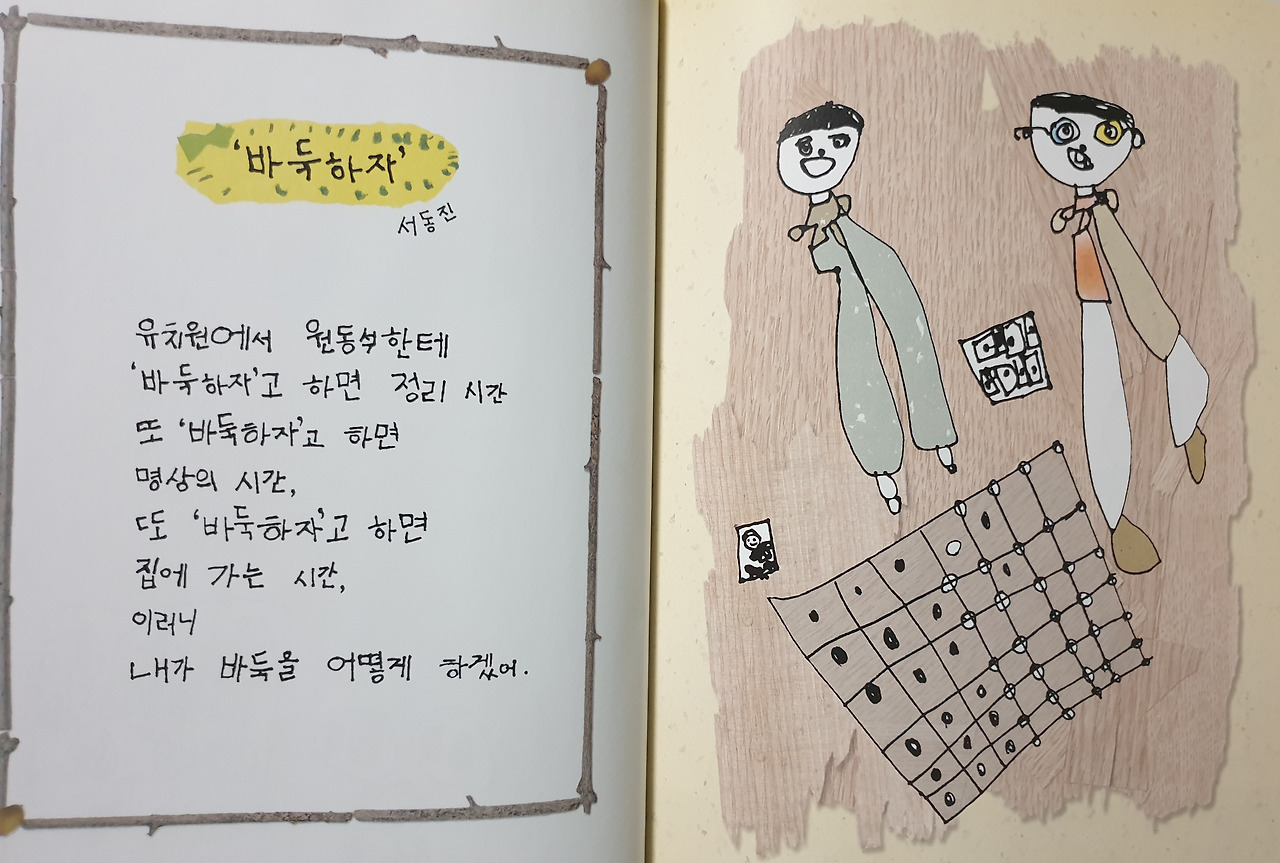 '바둑하자'
서동진
유치원에서 원동석한테
'바둑하자'고 하면 정리 시간
또 '바둑하자'고 하면
명상의 시간,
또 '바둑하자'고 하면
집에 가는 시간,
이러니
내가 바둑을 어떻게 하겠어.